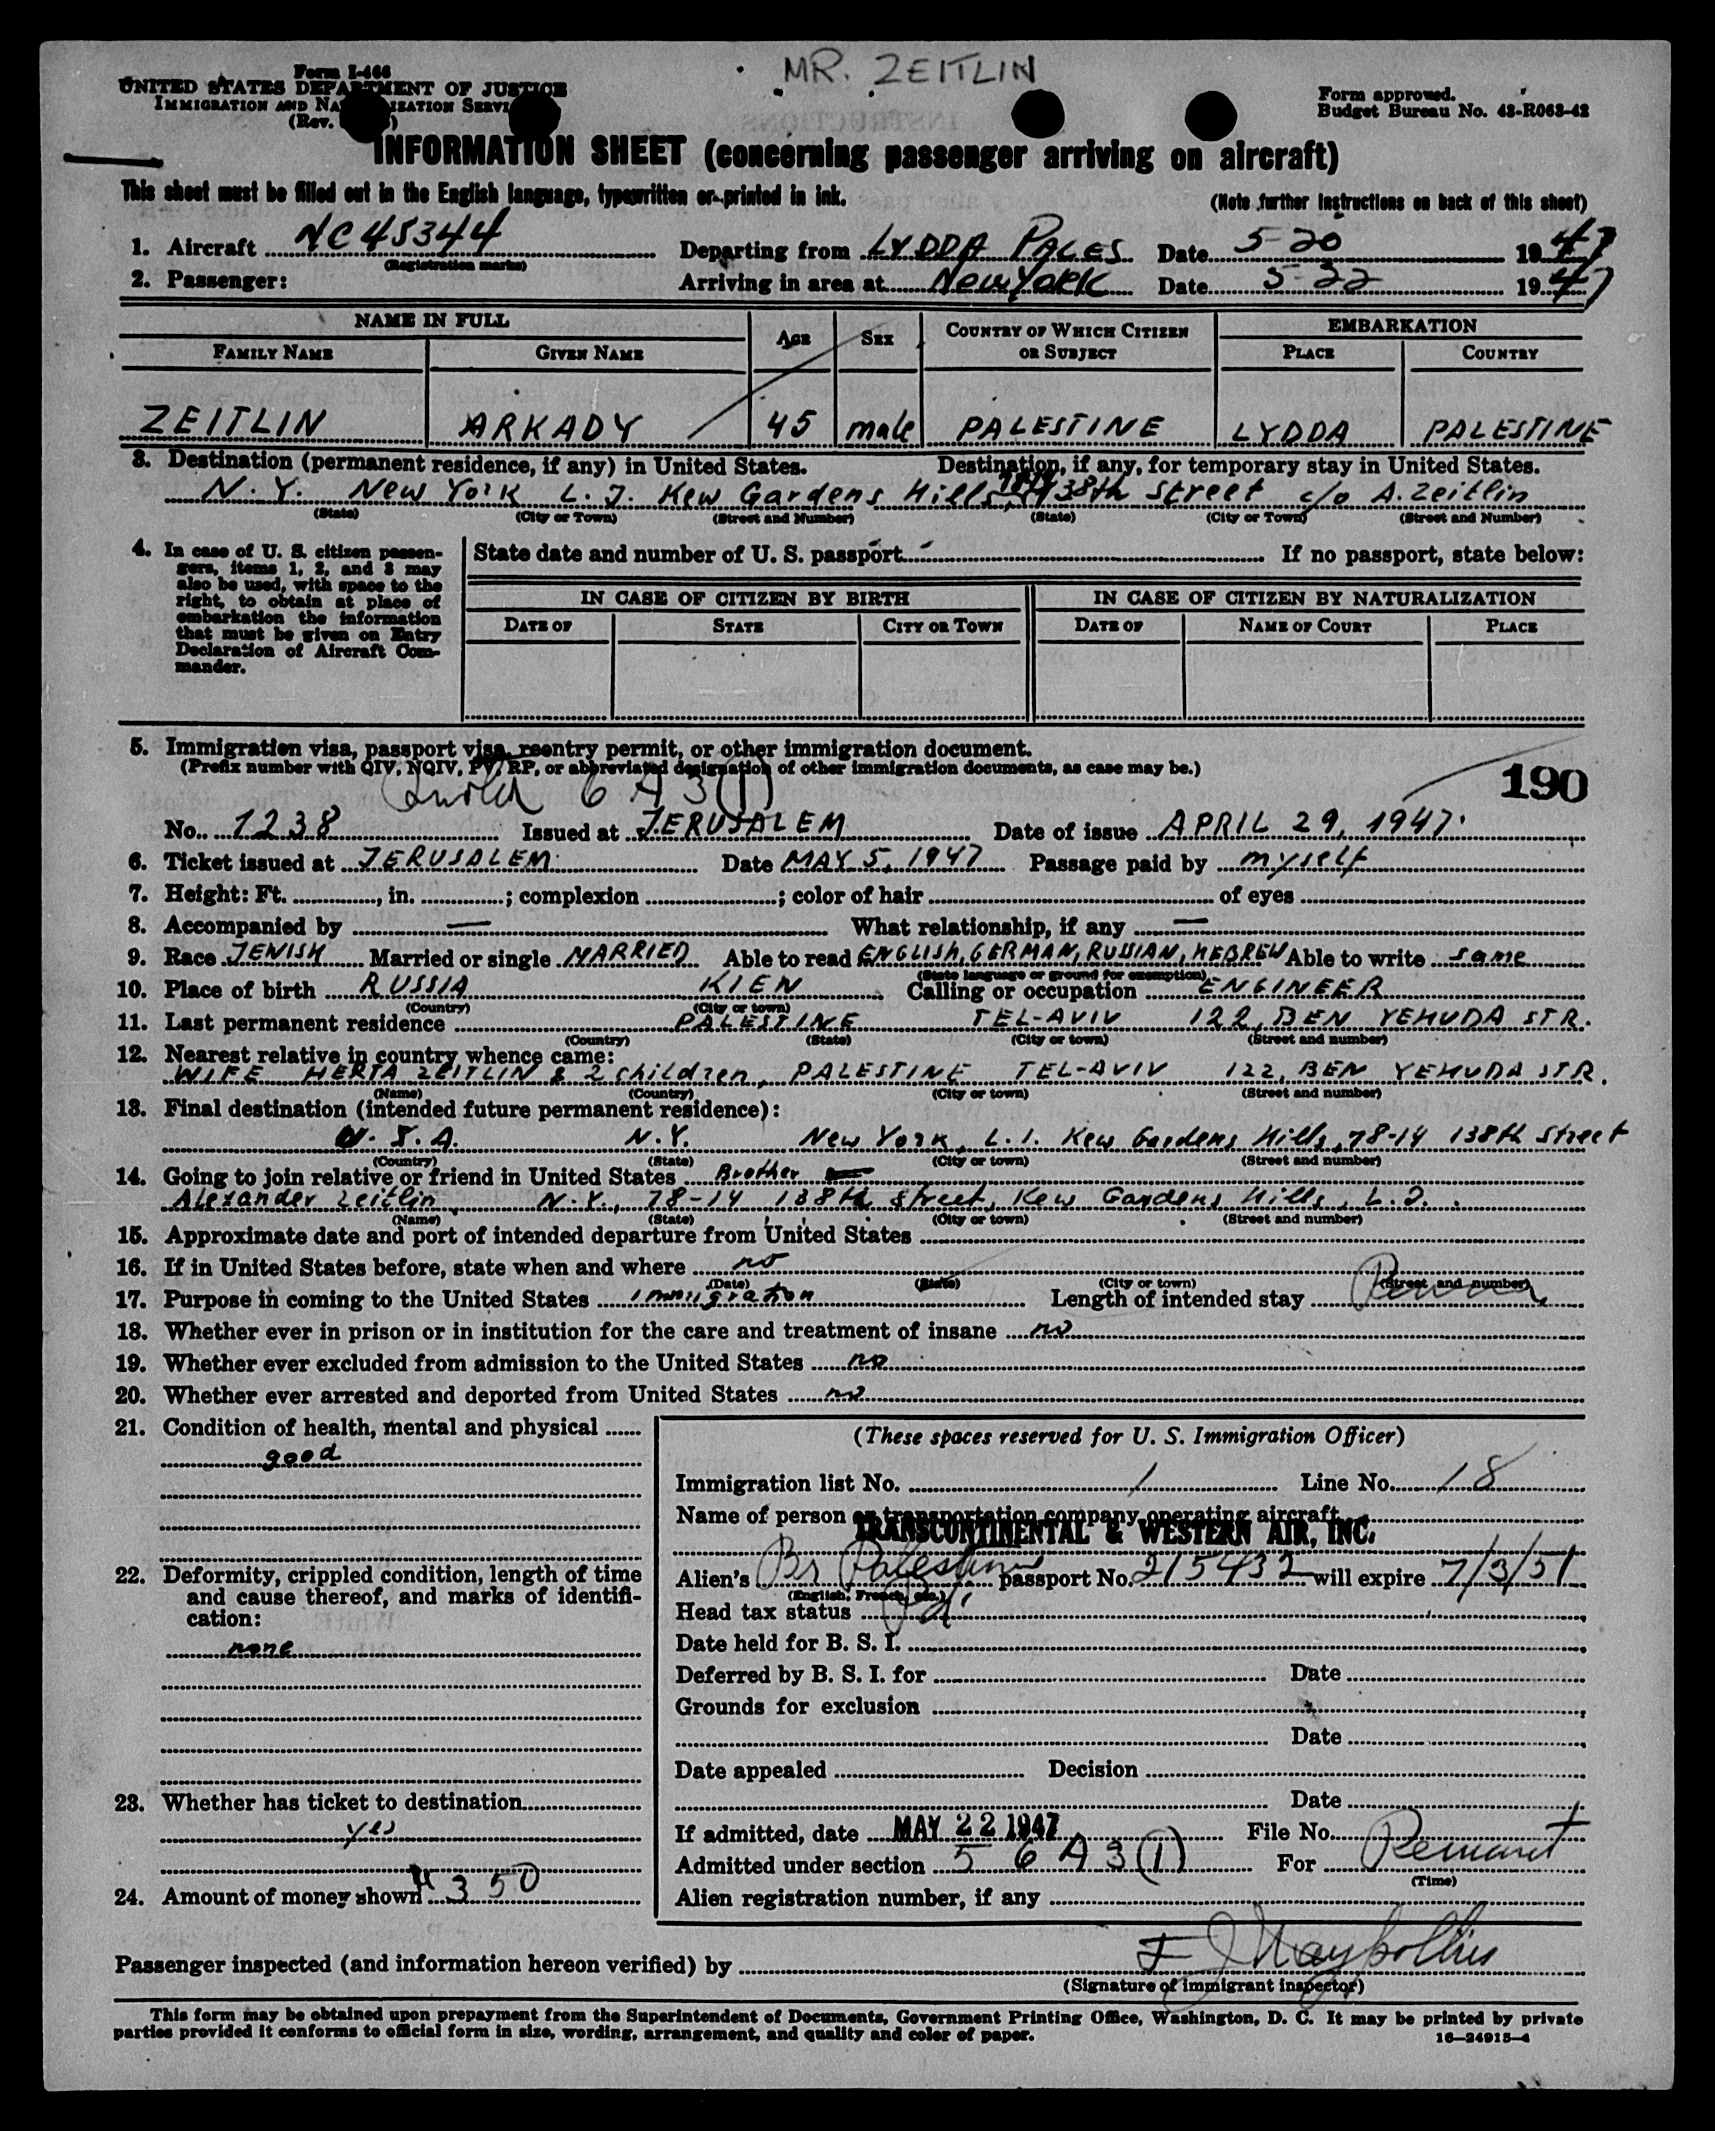 MR. ZEITLIN
Form I-466
UNITED STATES DEPARTMENT OF JUSTICE
IMMIGRATION AND NATURALIZATION SERVICE
(Rev.
Form approved.
Budget Bureau No. 43-R063-42
INFORMATION SHEET (concerning passenger arriving on aircraft)
This sheet must be filled out in the English language, typewritten or printed in ink. (Note further instructions on back of this sheet)
1. Aircraft NC45344 Departing from LYDDA PALES Date 5-20 1947
(Registration marks)
2. Passenger: Arriving in area at New York Date 5-22 1947
NAME IN FULL AGE SEX COUNTRY OF WHICH CITIZEN OR SUBJECT EMBARKATION
FAMILY NAME GIVEN NAME PLACE COUNTRY
ZEITLIN ARKADY 45 male PALESTINE LYDDA PALESTINE
3. Destination (permanent residence, if any) in United States. Destination, if any, for temporary stay in United States.
N.Y. New York L.I. Kew Gardens Hills, 138th Street c/o A. Zeitlin
(State) (City or Town) (Street and Number) (State) (City or Town) (Street and Number)
4. In case of U. S. citizen passengers, items 1, 2, and 3 may also be used, with space to the right, to obtain at place of embarkation the information that must be given on Entry Declaration of Aircraft Commander.
State date and number of U. S. passport - If no passport, state below:
IN CASE OF CITIZEN BY BIRTH IN CASE OF CITIZEN BY NATURALIZATION
DATE OF STATE CITY OR TOWN DATE OF NAME OF COURT PLACE
5. Immigration visa, passport visa, reentry permit, or other immigration document.
(Prefix number with QIV, NQIV, PV, RP, or abbreviated designation of other immigration documents, as case may be.)
190
6 A 3 (1)
No. 1238 Issued at JERUSALEM Date of issue APRIL 29, 1947.
6. Ticket issued at JERUSALEM Date MAY 5, 1947 Passage paid by myself
7. Height: Ft. , in. ; complexion ; color of hair of eyes
8. Accompanied by — What relationship, if any —
9. Race JEWISH Married or single MARRIED Able to read ENGLISH, GERMAN, RUSSIAN, HEBREW Able to write same
(State language or ground for exemption)
10. Place of birth RUSSIA KIEW Calling or occupation ENGINEER
(Country) (City or town)
11. Last permanent residence PALESTINE TEL-AVIV 122, BEN YEHUDA STR.
(Country) (State) (City or town) (Street and number)
12. Nearest relative in country whence came:
WIFE HERTA ZEITLIN & 2 children, PALESTINE TEL-AVIV 122, BEN YEHUDA STR.
(Name) (Country) (City or town) (Street and number)
13. Final destination (intended future permanent residence):
U.S.A. N.Y. New York, L.I. Kew Gardens Hills, 78-14 138th Street
(Country) (State) (City or town) (Street and number)
14. Going to join relative or friend in United States Brother
Alexander Zeitlin N.Y., 78-14 138th Street, Kew Gardens Hills, L.I.
(Name) (State) (City or town) (Street and number)
15. Approximate date and port of intended departure from United States
16. If in United States before, state when and where no
(Date) (State) (City or town) (Street and number)
17. Purpose in coming to the United States immigration Length of intended stay
18. Whether ever in prison or in institution for the care and treatment of insane no
19. Whether ever excluded from admission to the United States no
20. Whether ever arrested and deported from United States no
21. Condition of health, mental and physical
good
22. Deformity, crippled condition, length of time and cause thereof, and marks of identification:
none
23. Whether has ticket to destination
yes
24. Amount of money shown 350
(These spaces reserved for U. S. Immigration Officer)
Immigration list No. 1 Line No. 18
Name of person or transportation company operating aircraft
TRANSCONTINENTAL & WESTERN AIR, INC.
Alien's Br Palestine passport No. 215432 will expire 7/3/51
(English, French, etc.)
Head tax status Pd
Date held for B. S. I.
Deferred by B. S. I. for Date
Grounds for exclusion
Date
Date appealed Decision
Date
If admitted, date MAY 22 1947 File No.
Admitted under section 5 6 A 3 (1) For
(Time)
Alien registration number, if any
Passenger inspected (and information hereon verified) by
(Signature of immigrant inspector)
This form may be obtained upon prepayment from the Superintendent of Documents, Government Printing Office, Washington, D. C. It may be printed by private
parties provided it conforms to official form in size, wording, arrangement, and quality and color of paper. 16—24915-4